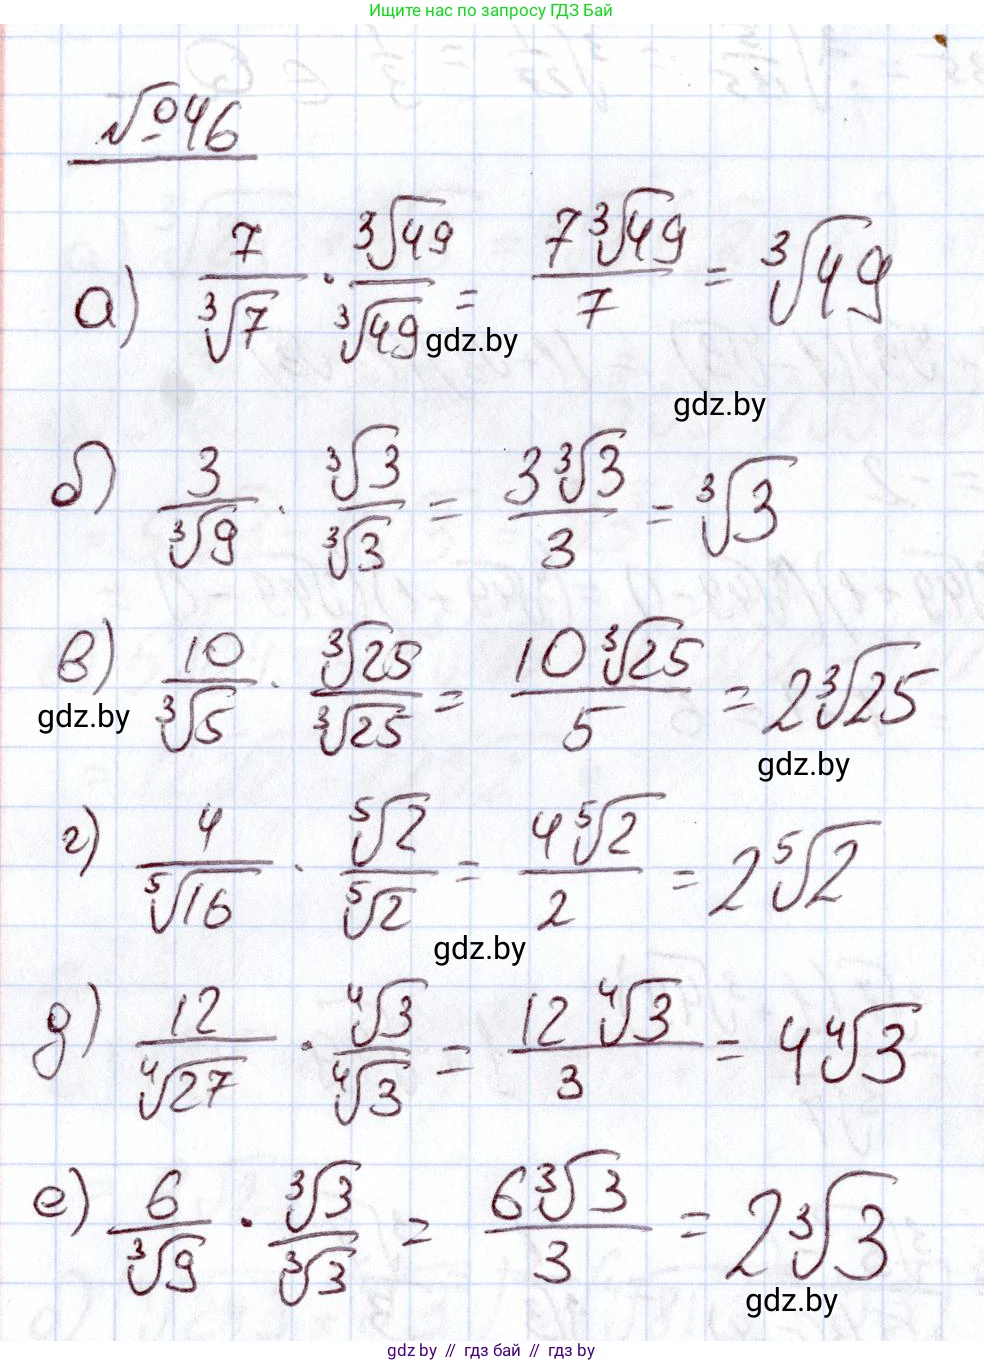 Ищите нас по запросу ГДЗ Бай
№46
а) 7/∛7 · ∛49/∛49 = 7∛49/7 = ∛49
gdz.by
gdz.by
б) 3/∛9 · ∛3/∛3 = 3∛3/3 = ∛3
в) 10/∛5 · ∛25/∛25 = 10∛25/5 = 2∛25
gdz.by
gdz.by
г) 4/⁵√16 · ⁵√2/⁵√2 = 4⁵√2/2 = 2⁵√2
gdz.by
д) 12/∜27 · ∜3/∜3 = 12∜3/3 = 4∜3
е) 6/∛9 · ∛3/∛3 = 6∛3/3 = 2∛3
gdz.by
gdz by // гдз бай // gdz by